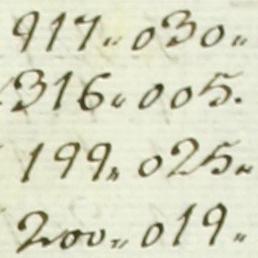 917„030„
316„005.
199„025„
200„019„